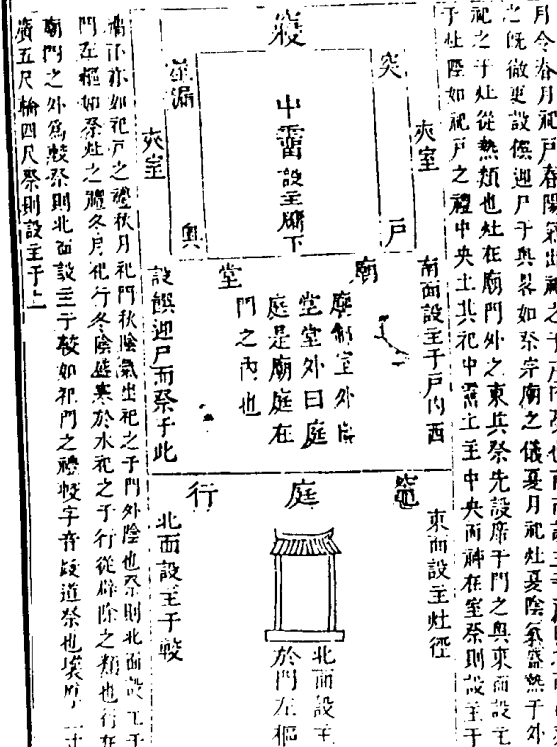 月令春月祀戶春陽氣出祀之于戶內
之既徹更設饌迎尸于奧畧如祭宗廟之儀夏月祀灶夏陰氣盛熱于外
祀之于灶從熱類也灶在廟門外之東其祭先設席于門之奧東面設主
于灶陘如祀戶之禮中央土其祀中霤土主中央而神在室祭則設主于
寢
突
屋漏
中霤設主牖下
夾室
夾室
戶
奧
廟
堂
南面設主于戶內西
堂堂外曰庭
庭是廟庭在
門之內也
設饌迎尸而祭于此
竈
庭
行
東面設主灶徑
北面設主
於門左樞
北面設主于軷
牖下亦如祀戶之禮秋月祀門秋陰氣出祀之于門外陰也祭則北面設主于
門左樞如祭灶之禮冬月祀行冬陰盛寒於水祀之于行從辟除之類也行在
廟門之外為軷祭則北面設主于軷如祀門之禮軷字音跋道祭也
廣五尺輪四尺祭則設主于上